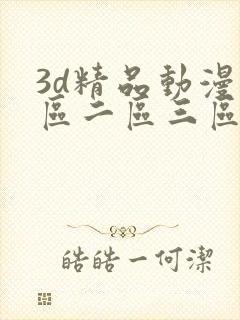 3d精品動漫
區二區三區
皓皓一何潔